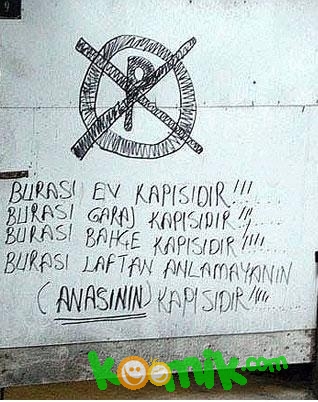 9
P
BURASI EV KAPISIDIR!!!....
BURASI GARAJ KAPISIDIR!!!.....
BURASI BAHÇE KAPISIDIR!!!!....
BURASI LAFTAN ANLAMAYANIN
(ANASININ) KAPISIDIR!!!!....
koomik.com